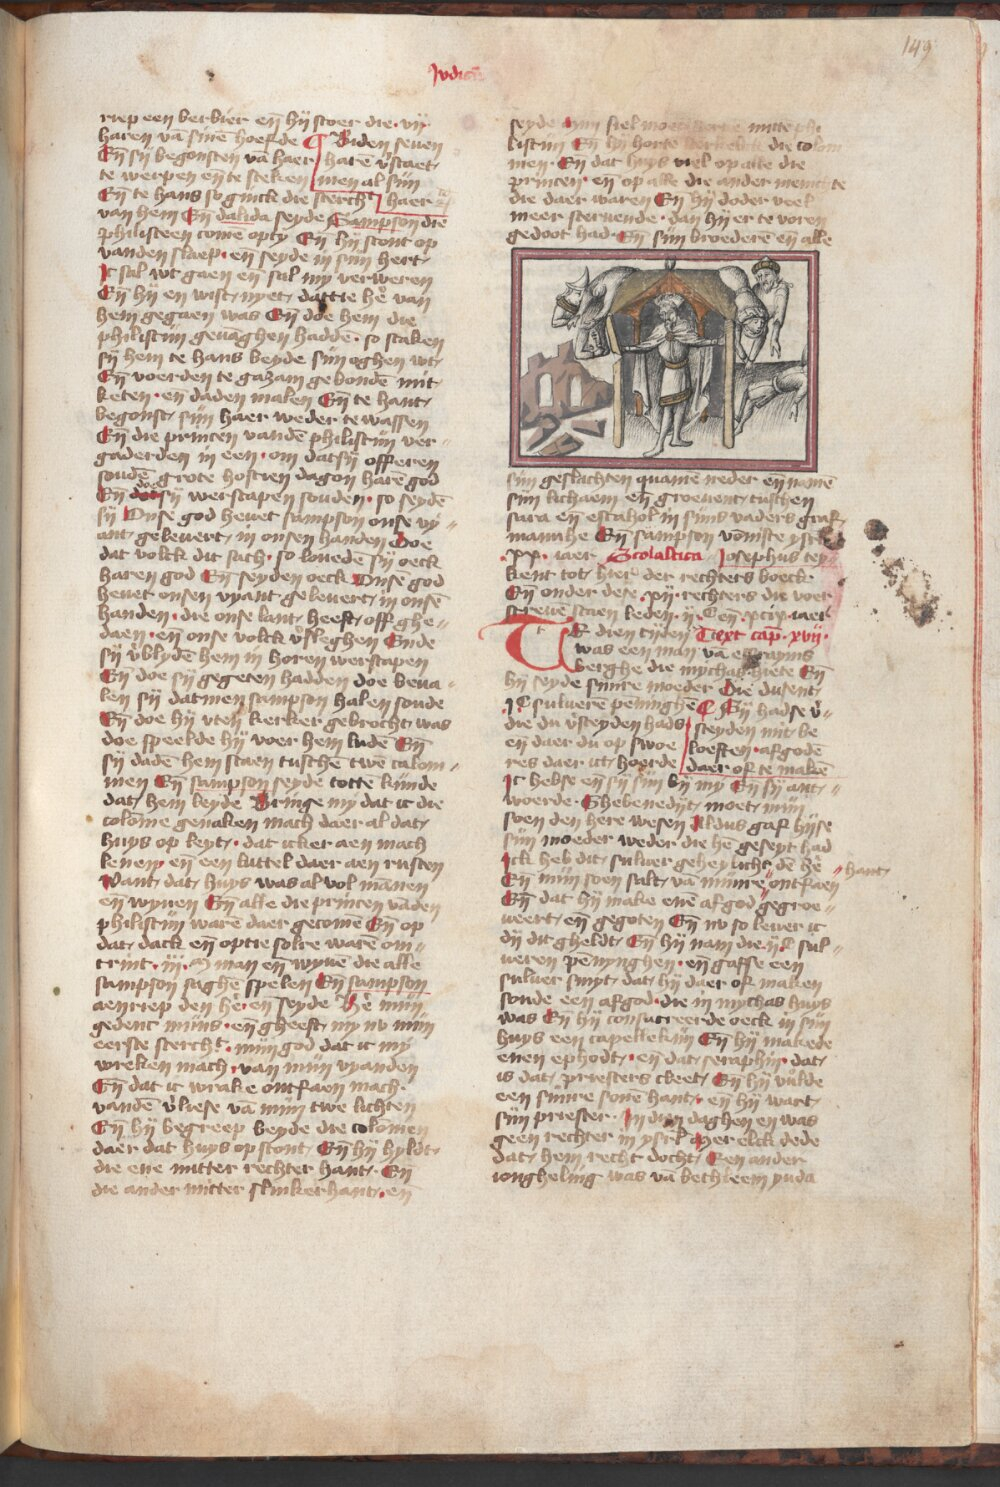 149
Judicum
riep een berbier en̄ hij scoer die .vij.
haren vā sinē hoefde ¶ Biden seven
En̄ sij begonsten vā haer harē v̓staet
te werpen en̄ te steken men al sijn
En̄ te hans so ginck die sterch haer
van hem En̄ dalida seyde Sampson die
philisteen comē opty En̄ hij stont op
vanden slaep · en̄ seyde in sijn hert
Ic sal wt gaen en̄ sal my verweren
En̄ hij en wist nyet dattie hē van
hem gegaen was En̄ doe hem die
philistijn gevāghen haddē · so staken
sij hem te hans beyde sijn oghen wt
En̄ voerden te gazam gebondē mit
keten · en̄ daden malen En̄ te hant
begonst sijn haer weder te wassen
En̄ die princen vandē philistijn ver-
gaderden in een · om datsij offeren
soudē grote hostien dagon harē god
En̄ doe sij werscapen souden · so seydē
sij Onse god hevet sampson onse vy-
ant gelevert in onsen handen Doe
dat volck dit sach · so lovedē sij oeck
haren god En̄ seyden oeck Onse god
hevet onsen vyant gelevert in onsē
handen · die onse lant heeft off ghe-
daen · en̄ onse volck v̓sleghen Ende
sij v̓blydē hem in horen werscapen
En̄ doe sij gegeten hadden doe beva-
len sij datmen sampson halen soude
En̄ doe hij uten kerker gebrocht was
doe speelde hij voer hem ludē En̄
sij dadē hem staen tuschē twē calom-
men En̄ sampson seyde totte kinde
dat hem leyde Bringe my dat ic die
colōme genaken mach daer al dat
huys op leyt · dat icker aen mach
lenen · en̄ een luttel daer aen rusten
Want dat huys was al vol mānen
en̄ wyven En̄ alle die princen vādē
philistijn warē daer gecomē En̄ op
dat dack en̄ optie solre warē om-
trint .iij. M man en̄ wyvē die alle
sampson saghē spelen En̄ sampson
aenriep den hē · en̄ seyde Hē mijn
gedenc mijns · en̄ gheeft my nv mijn
eerste stercht · mijn god dat ic my
wreken mach van mijn vyanden
En̄ dat ic wrake ontfaen mach
vandē v̓liese vā mijn twe lichten
En̄ hij begreep beyde die colomen
daer dat huys op stont En̄ hij hyldt
die ene mitter rechter hant En̄
die ander mitter slinkerhant · en̄
seyde Mijn siel moet sterve mitte phi
listijn En̄ hij horte die colom
men · En̄ dat huys viel op alle die
princen · en̄ op alle die ander menichte
die daer waren En̄ hij doder veel
meer stervende · dan hij er te voren
gedoot had · En̄ sijn broederē en̄ alle
sijn geslachten quamē neder en̄ namē
sijn lichaem en̄ groevent tuschen
sara en̄ escahol in sijns vaders graf
manuhe En̄ sampson vōniste ysrl
.xx. iaer Scolastica Josephus tey
kent tot hier der rechters boeck
En̄ onder dese .xij. rechters die voer
screvē staen leden .ij. C en̄ .xcix. iaer
IN dien tijden Text cap. xvij.
was een man vā effrayms
berghe die mychas hiete En̄
hij seyde sinre moeder Die dusent
.I C suluere peninghē ¶ Sij hadse v̓-
die du v̓steyden hads steyden mit be
en̄ daer du op swoe loeften · afgodē
res daer ict hoerde daer of te makē
Ic hebse en̄ sij sijn bij my En̄ sij ant-
woerde · Ghebenedijt moet mijn
soen den here wesen Aldus gaf hijse
sijn moeder weder die hē geseyt had
Ick heb dit suluer geheylicht dē hē
hant
En̄ mijn soen salt vā mijnre ontfaen
En̄ dat hij make enē afgod gegroe-
veert en̄ gegoten En̄ nv so lever ic
dij dit gheldt En̄ hij nam die .ij C sul-
veren penynghen · en̄ gaffse een
suluer smyt dat hij daer of maken
soude een afgod · die in mychas huys
was En̄ hij consacreerde oeck in sijn
huys een capellekijn En̄ hij makede
enen ephodt · en̄ dat seraphijn dat
is dat priesters cleet En̄ hij vulde
een sijnre sonē hant · en̄ hij wart
sijn priester · In dien daghen en was
geen rechter in ysrl Mer elck dede
dat hem recht docht Een ander
iongheling was vā bethleem yuda